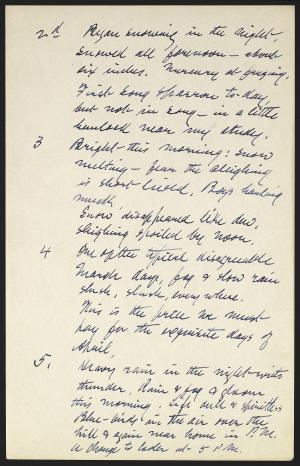 2d Began snowing in the night,
snowed all forenoon - about
six inches. Mercury at freezing.
First song sparrow to-day
but not in song - in a little
hemlock near my study.
3 Bright this morning: snow
melting - fear the sleighing
is short lived. Boys hauling
Snow disappeared like dew,
sleighing spoiled by noon.
4 One of the typical disagreeable
March days, fog & slow rain
slush, slush, everywhere.
This is the price we must
pay for the exquisite days of
April.
5. Heavy rain in the night with
thunder. Rain & fog & gloom
this morning. Life dull & spiritless
Blue-birds in the air over the
hill & again near home in P.M.
A change to colder at 5 P.M.